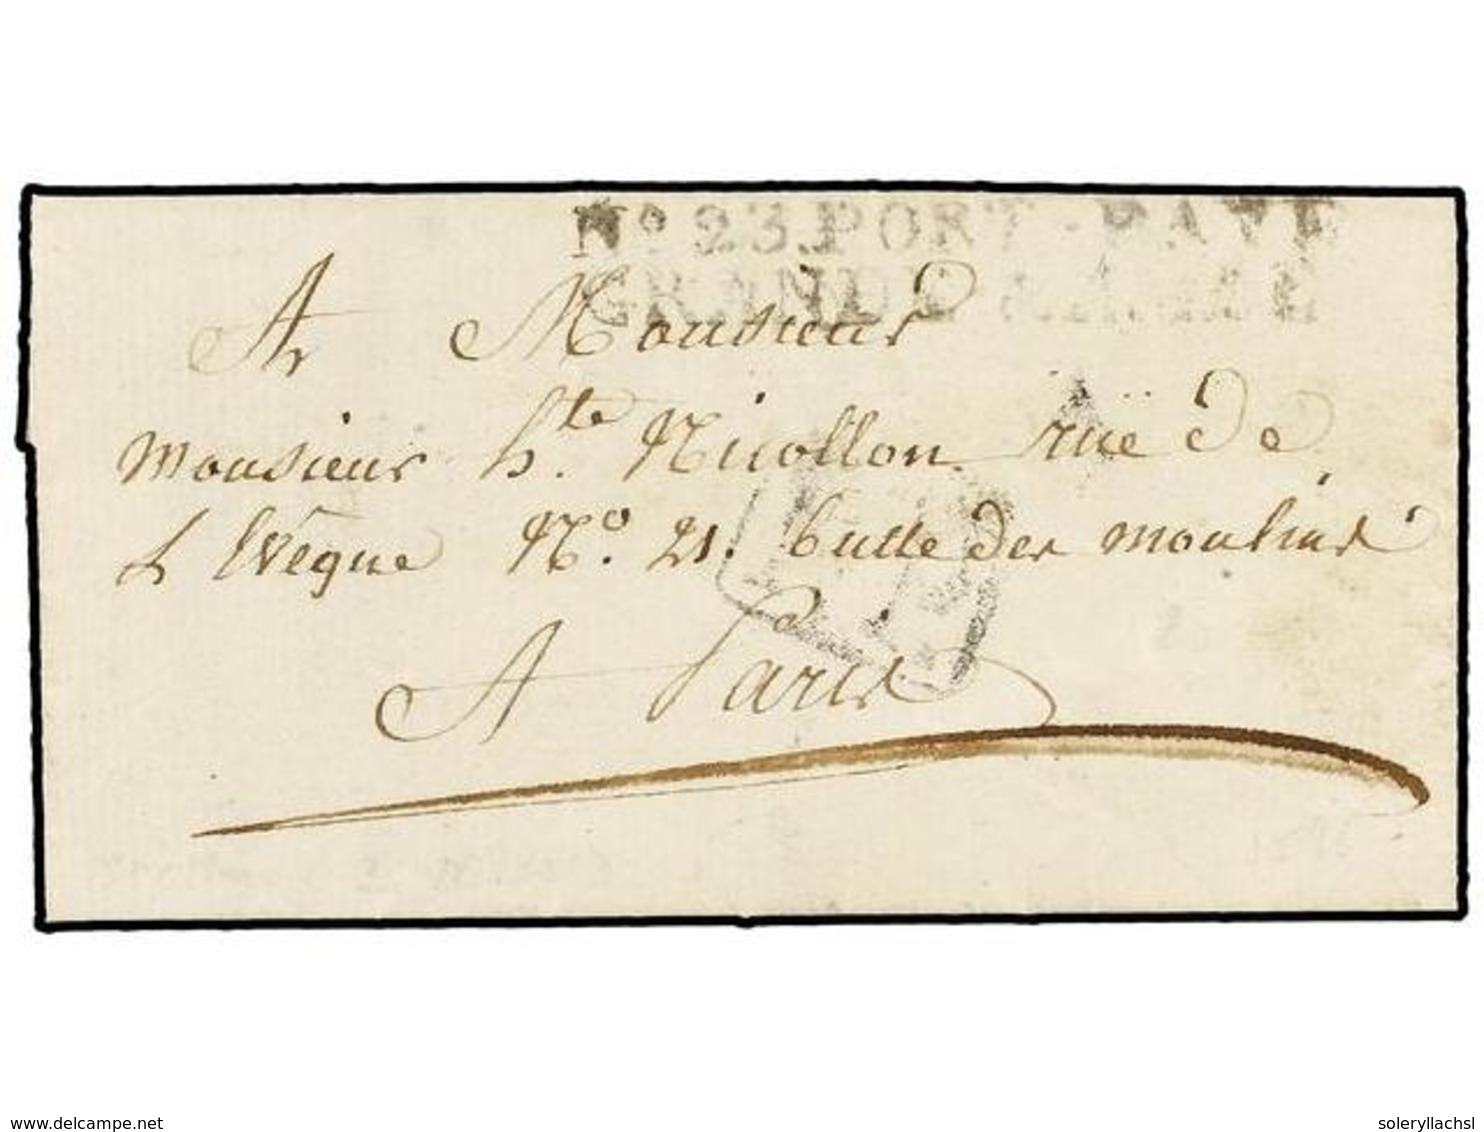 No. 23. PORT-PAYÉ
GRANDE-ARMÉE
A Monsieur
Monsieur h.te Nicollon rüe de
L'Evêque No. 21. butte des moulins
A Paris
www.delcampe.net
soleryllachsl